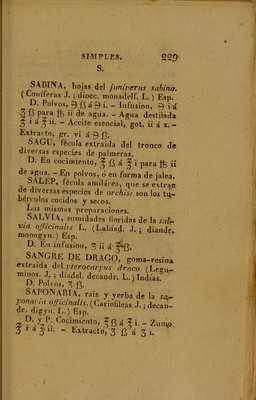 SIMPLES. 229
S.
SABINA, hojas del juniperus sabina.
(Coníferas J. ; dioec. monadelf. L.) Esp.
D. Polvos, ℈ ß á ℈ i. - Infusion, ℈ i á
ʒ ß para ℔ ii de agua. - Agua destilada
ʒ i á ʒ ii. - Aceite esencial, got. ii á x. -
Extracto, gr. vi á ℈ ß.
SAGU, fécula extraida del tronco de
diversas especies de palmeras.
D. En cocimiento, ℥ ß á ℥ i para ℔ ii
de agua. - En polvos, ó en forma de jalea.
SALEP, fécula amilácea, que se extrae
de diversas especies de orchis: son los tu-
bérculos cocidos y secos.
Las mismas preparaciones.
SALVIA, sumidades floridas de la sal-
via officinalis L. (Labiad. J. ; diandr.
monogyn.) Esp.
D. En infusion, ʒ ii á ℥ ß.
SANGRE DE DRAGO, goma-resina
extraida del pterocarpus draco (Legu-
minos. J. ; diadel. decandr. L.) Indias.
D. Polvos, ʒ ß.
SAPONARIA, raiz y yerba de la sa-
ponaria officinalis. (Cariofileas J. ; decan-
dr. digyn. L.) Esp.
D. y P. Cocimiento, ℥ ß á ℥ i. - Zumo
℥ i á ℥ ii. - Extracto, ʒ ß á ʒ i.